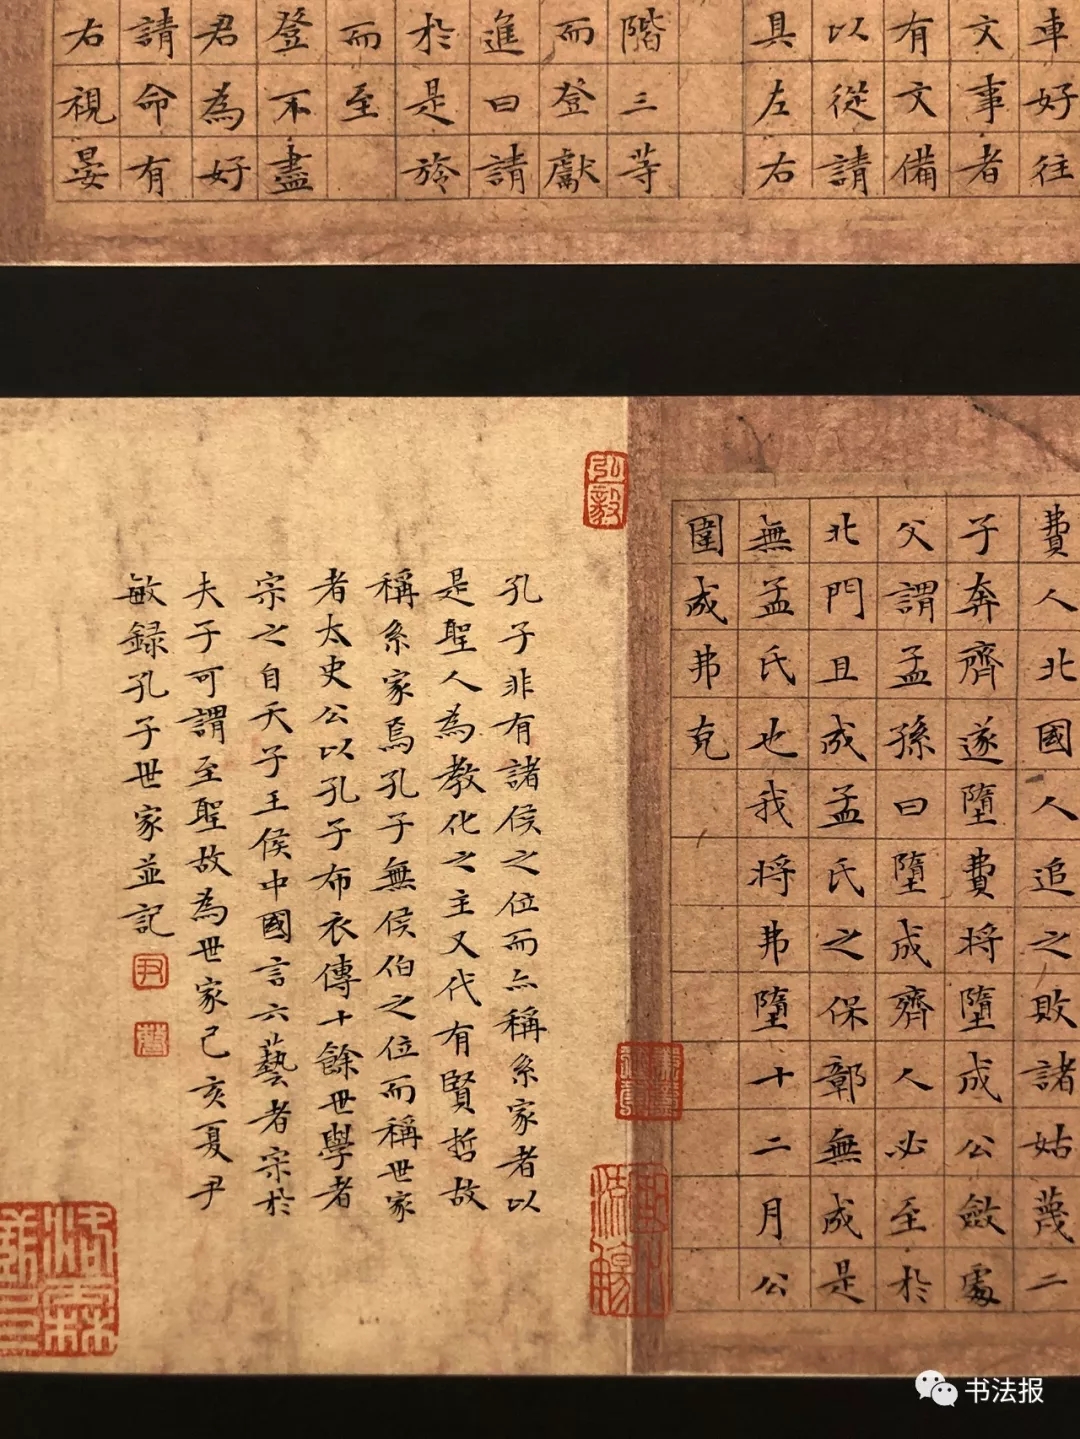 車好往
文事者
有文備
以從請
具左右
階三等
而登獻
進曰請
於是旍
而至
登不盡
君為好
請命有
右視晏
費人北國人追之敗諸姑蔑二
子奔齊遂墮費將墮成公斂處
父謂孟孫曰墮成齊人必至於
北門且成孟氏之保鄣無成是
無孟氏也我將弗墮十二月公
圍成弗克
弘毅
孔子非有諸侯之位而亦稱系家者以
是聖人為教化之主又代有賢哲故
稱系家焉孔子無侯伯之位而稱世家
者太史公以孔子布衣傳十餘世學者
宗之自天子王侯中國言六藝者宗於
夫子可謂至聖故為世家己亥夏尹
敏錄孔子世家並記
尹
书法报